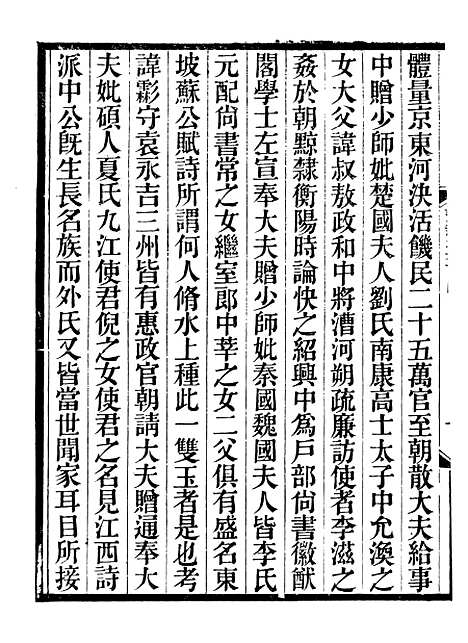 體量京東河決活饑民二十五萬官至朝散大夫給事
中贈少師妣楚國夫人劉氏南康高士太子中允渙之
女大父諱叔敖政和中將漕河朔疏廉訪使者李滋之
姦於朝黥隸衡陽時論快之紹興中為戶部尚書徽猷
閣學士左宣奉大夫贈少師妣秦國魏國夫人皆李氏
元配尚書常之女繼室郎中莘之女二父俱有盛名東
坡蘇公賦詩所謂何人脩水上種此一雙玉者是也考
諱彩守袁永吉三州皆有惠政官朝請大夫贈通奉大
夫妣碩人夏氏九江使君倪之女使君之名見江西詩
派中公既生長名族而外氏又皆當世聞家耳目所接